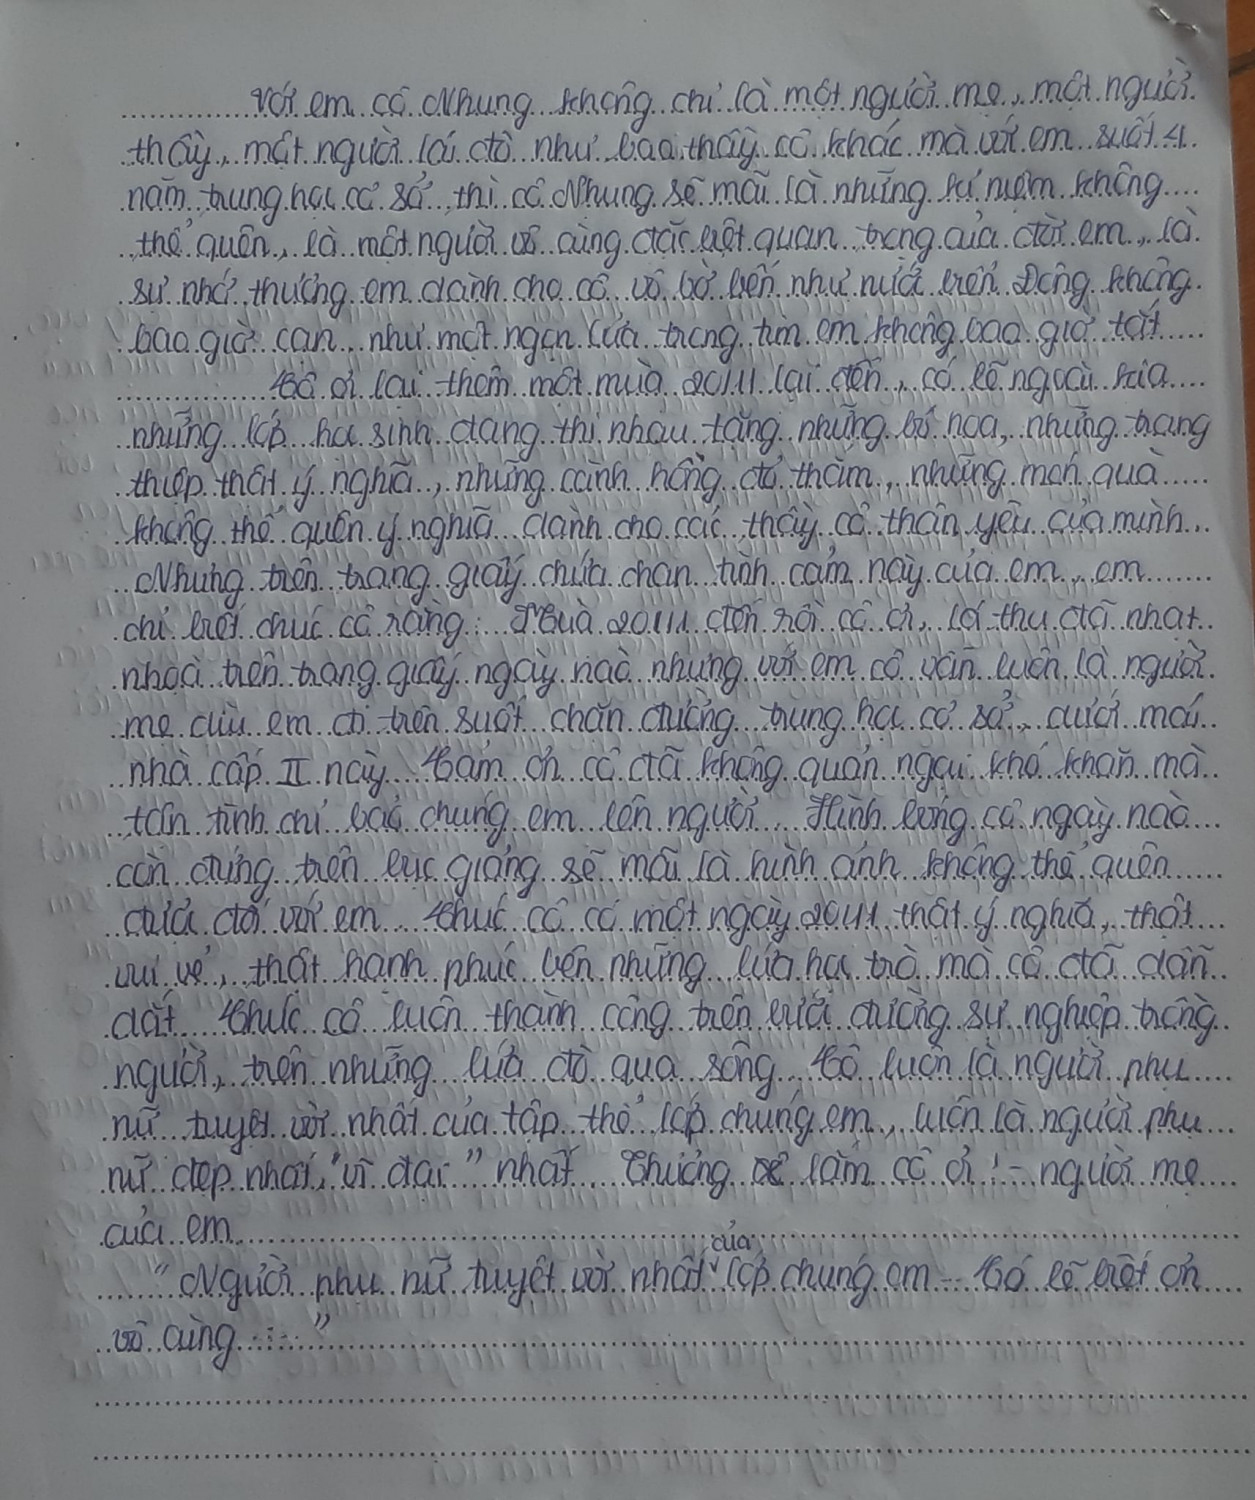 Với em cô Nhung không chỉ là một người mẹ, một người
thầy, một người lái đò như bao thầy cô khác mà với em suốt 4
năm trung học cơ sở thì cô Nhung sẽ mãi là những kỷ niệm không
thể quên, là một người vô cùng đặc biệt quan trọng của đời em, là
sự nhớ thương em dành cho cô vô bờ bến như nước biển Đông không
bao giờ cạn như một ngọn lửa trong tim em không bao giờ tắt
Cô ơi lại thêm một mùa 20/11 lại đến, có lẽ ngoài kia
những lớp học sinh đang thi nhau tặng những bó hoa, những trang
thiệp thật ý nghĩa, những cành hồng đỏ thắm, những món quà
không thể quên ý nghĩa dành cho các thầy cô thân yêu của mình
Nhưng trên trang giấy chứa chan tình cảm này của em, em
chỉ biết chúc cô rằng: Mùa 20/11 đến rồi cô ơi, lá thu đã nhạt
nhoà trên trang giấy ngày nào nhưng với em cô vẫn luôn là người
mẹ dìu em đi trên suốt chặn đường trung học cơ sở, dưới mái
nhà cấp II này. Cảm ơn cô đã không quản ngại khó khăn mà
tận tình chỉ bảo chúng em lên người. Hình bóng cô ngày nào
còn đứng trên bục giảng sẽ mãi là hình ảnh không thể quên
được đối với em. Chúc cô có một ngày 20/11 thật ý nghĩa, thật
vui vẻ, thật hạnh phúc bên những lứa học trò mà cô đã dẫn
dắt. Chúc cô luôn thành công trên bước đường sự nghiệp trồng
người, trên những lứa đò qua sông. Cô luôn là người phụ
nữ tuyệt vời nhất của tập thể lớp chúng em, luôn là người phụ
nữ đẹp nhất, "vĩ đại" nhất. Thương lắm cô ơi! - người mẹ
của em
"Người phụ nữ tuyệt vời nhất của lớp chúng em - Có lẽ biết ơn
vô cùng ..."